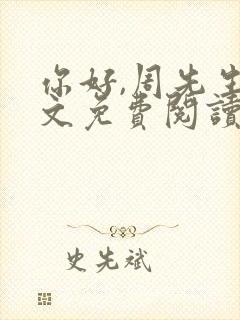 你好,周先生
文免費閱讀
史先斌